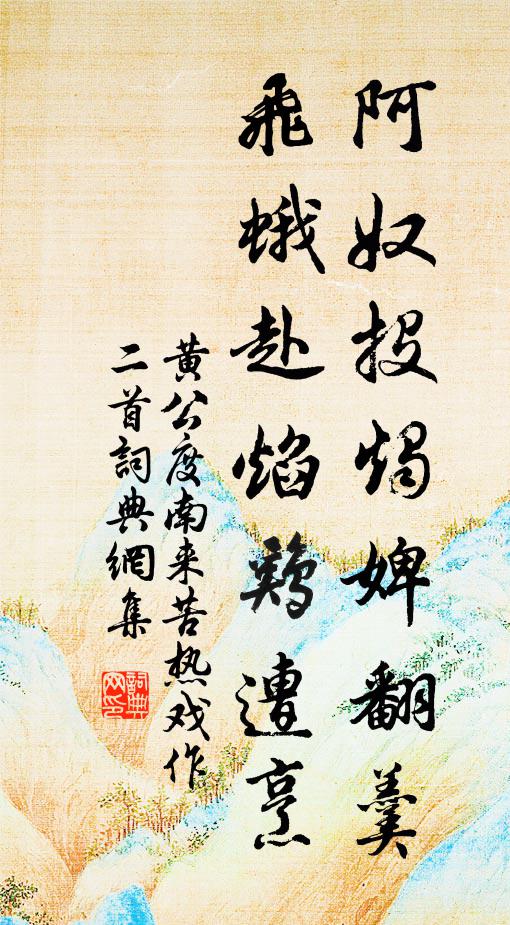 阿奴投燭婢翻羹
飛蛾赴焰鷄遭烹
黄公度南来苦热戏作
二首詞典網集
詞典
网印